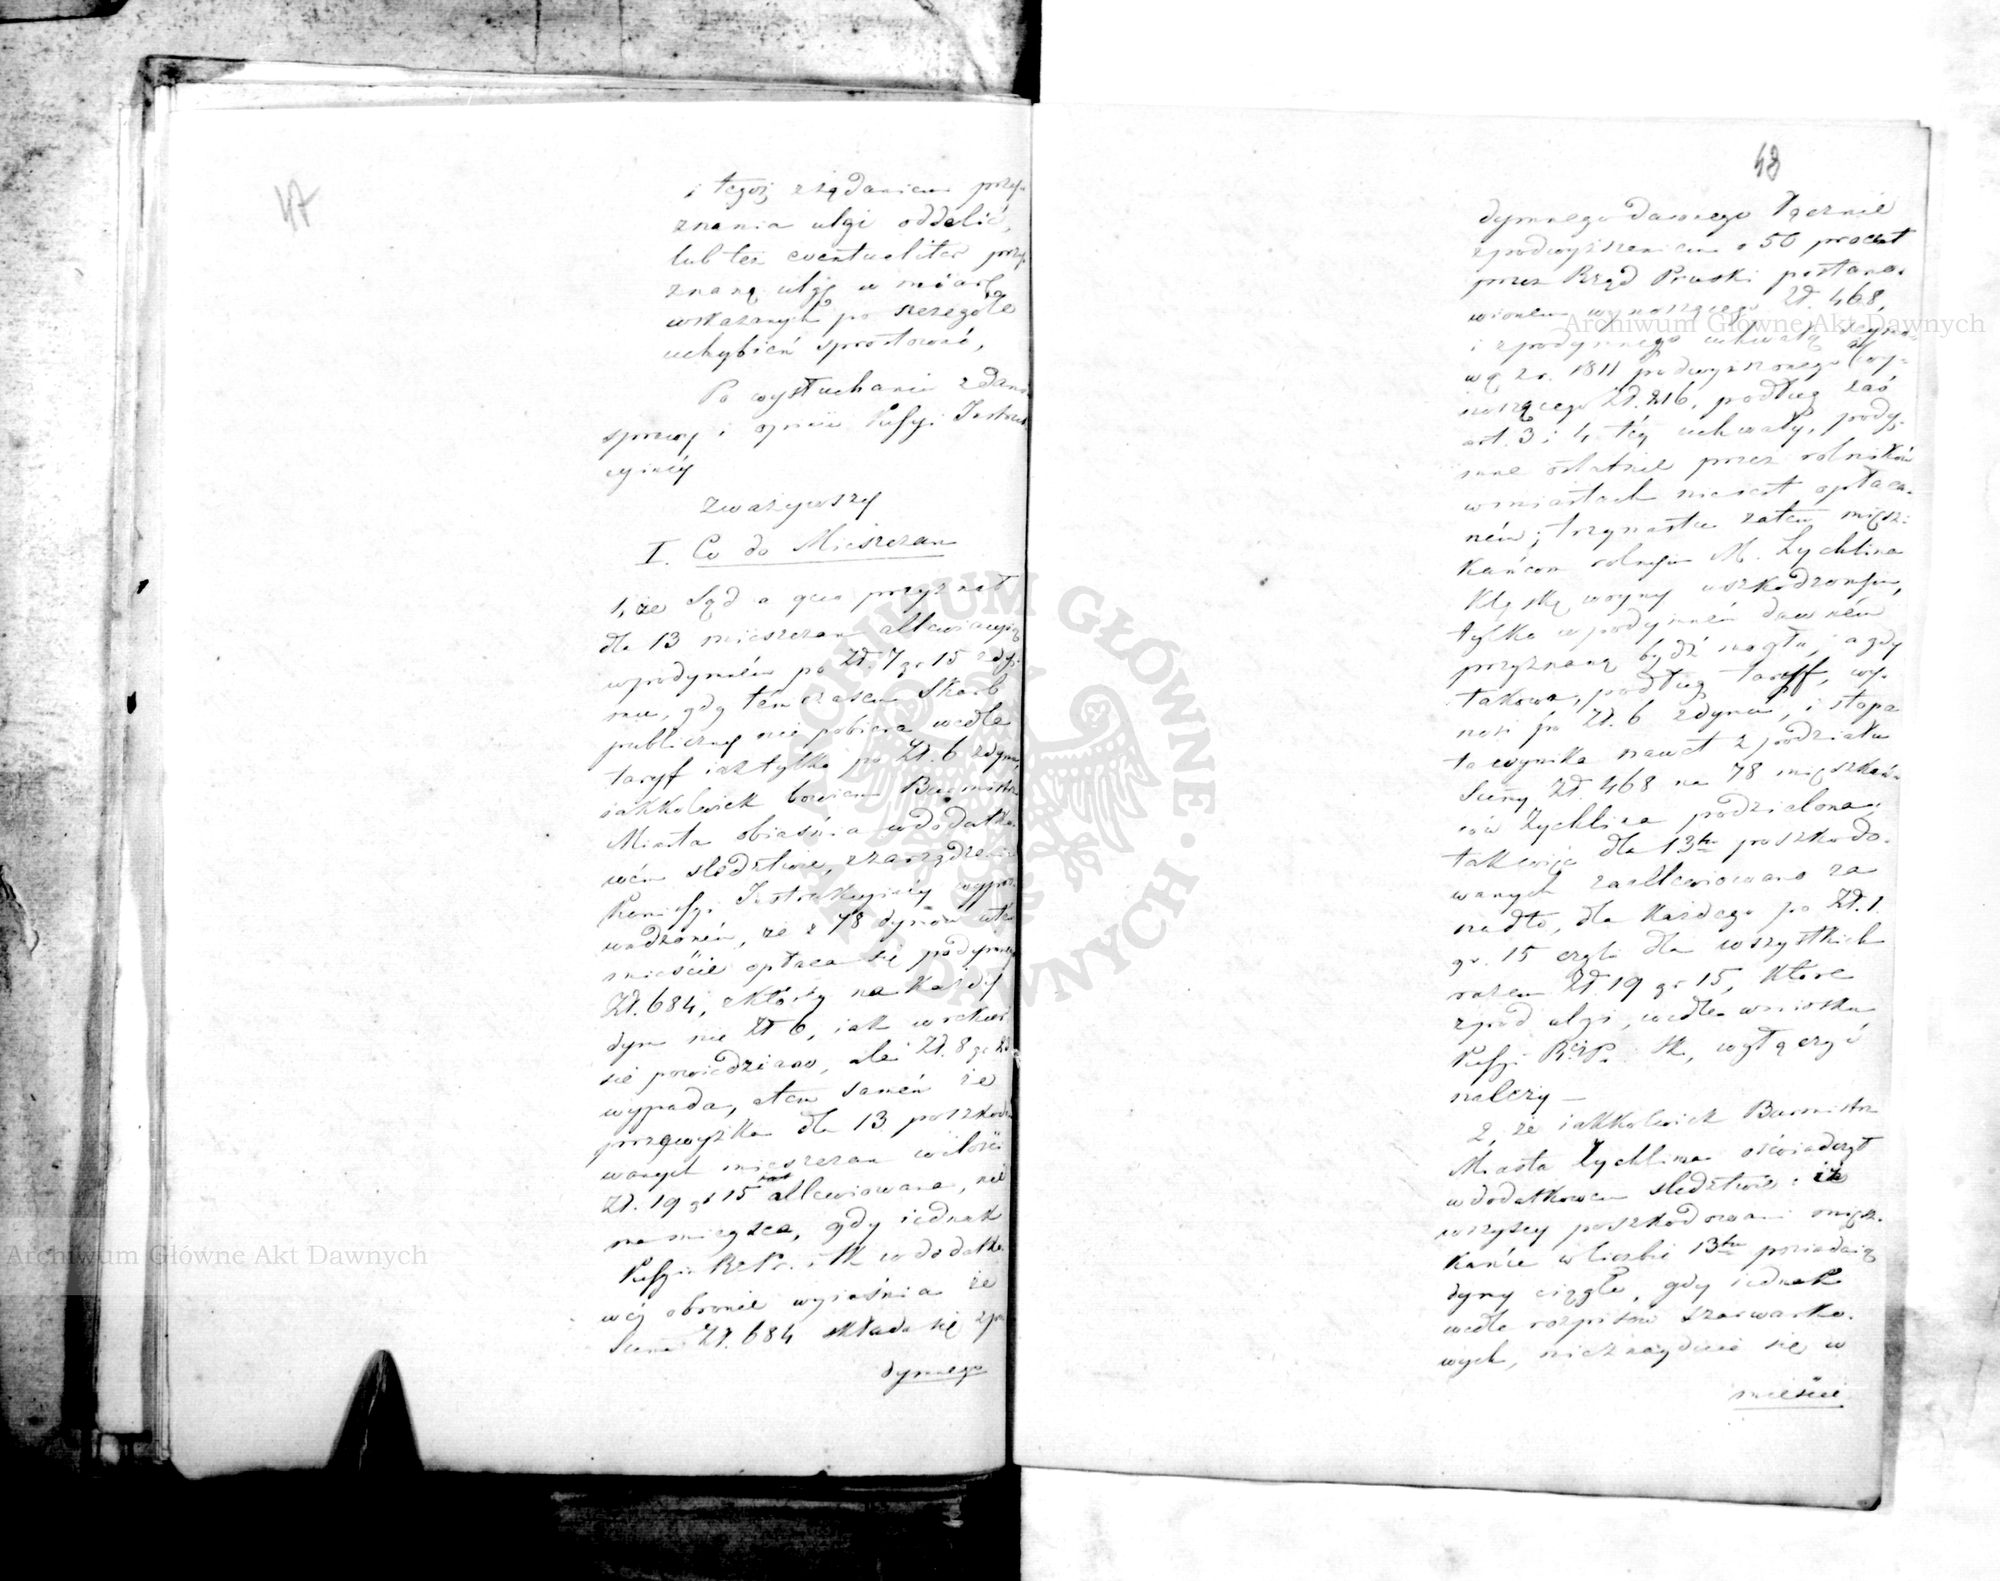 47
i tegoż z żądaniem przy-
znania ulgi oddalić,
lub też eventualiter przy-
znaną ulgę w miarę
wskazanych po szczególe
uchybień sprostować,
Po wysłuchaniu zdania
sprawy i opinii Instruk-
cyinéy
zważywszy
I. Co do Mieszczan
1, że Sąd a quo przyznał
dla 13 mieszczan allewiacyią
w podymném po Zł. 7 gr 15 z dy-
mu, gdy tém czasem Skarb
publiczny nie pobiera wedle
taryf iak tylko po Zł. 6 z dymu,
iakkolwiek bowiem Burmistrz
Miasta obiaśnia w dodatko-
wém śledztwie, z zarządzenia
Instrukcyinéy wypro-
wadzoném, że z 78 dymów w tém
mieście opłaca się podymnego
Zł. 684, z któréy na każdy
dym nie Zł 6, iak w rekur-
sie powiedziano, ale Zł. 8 gr 23
wypada, a tém samém że
przewyżka dla 13 poszkodo-
wanych mieszczan w ilości
Zł. 19 gr 15 allewiowana, nie
ma mieysca, gdy iednak
w dodatko-
wéy obronie wyiaśnia że
Summa Zł. 684 składa się z po-
dymnego
48
dymnego dawnego łącznie
z podwyższeniem o 50 procent
przez Rząd Pruski postano-
wioném wynoszącego Zł. 468,
i z podymnego uchwałą Seymo-
wą z r. 1811 podwyższonego wy-
noszącego Zł. 216, podług zaś
art. 3 i 4 téy uchwały, pody-
mne ostatnie przez rolników
w miastach nie iest opłaca-
ném; trzynastu zatem miesz-
kańcom rolnym M. Żychlina
klęską woyny uszkodzonym,
tylko w podymném dawném
przyznaną bydź mogła, a gdy
takowa, podług taryff, wy-
nosi po Zł. 6 z dymu, i stopa
ta wynika nawet z podziału
Summy Zł. 468 na 78 mieszkań-
ców Żychlina podzielona,
tak więc dla 13tu poszkodo-
wanych zaallewiowano za
nadto, dla każdego po Zł. 1.
gr. 15 czyli dla wszystkich
razem Zł. 19 gr 15, które
z pod ulgi, wedle wniosku
wyłączyć
należy —
2, że iakkolwiek Burmistrz
Miasta Żychlina oświadczył
w dodatkowem śledztwie: iż
wszyscy poszkodowani miesz-
kańce w liczbie 13tu posiadaią
dymy ciągłe, gdy iednak
wedle rozpisów szarwarko-
wych, nieznayduie się w
mieście
Archiwum Główne Akt Dawnych
Archiwum Główne Akt Dawnych
ARCHIWUM GŁÓWNE AKT DAWNYCH